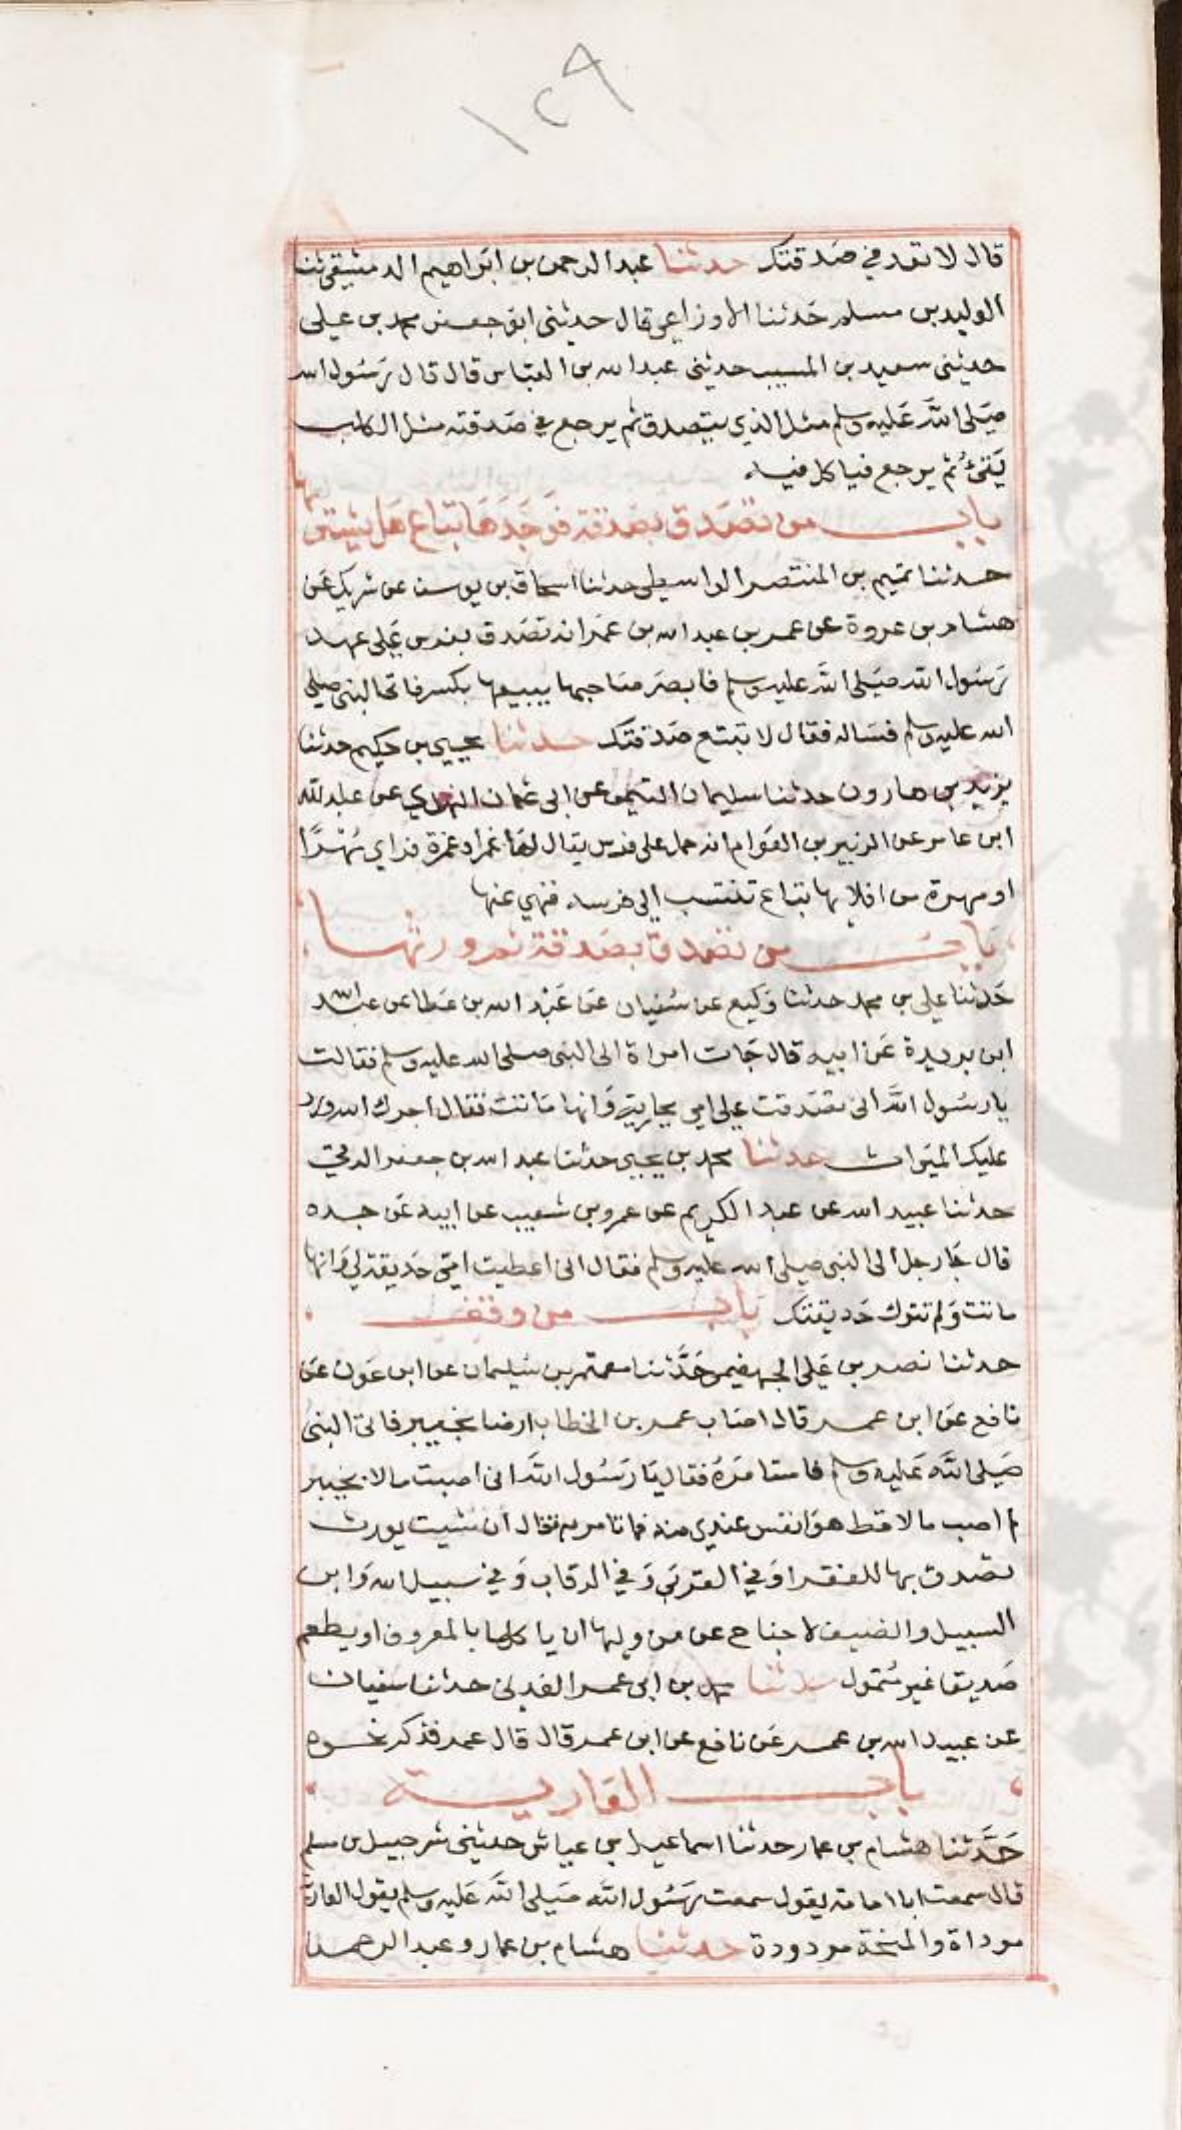 ١٢٩
قال لا تعد في صدقتك حدثنا عبد الرحمن بن ابراهيم الدمشقي ثنا
الوليد بن مسلم حدثنا الاوزاعي قال حدثني ابو جعفر محمد بن علي
حدثني سعيد بن المسيب حدثني عبد الله بن العباس قال قال رسول الله
صلى الله عليه وسلم مثل الذي يتصدق ثم يرجع في صدقته مثل الكلب
يقئ ثم يرجع فياكل قيئه
باب من تصدق بصدقة فوجدها تباع هل يشتريها
حدثنا تميم بن المنتصر الواسطي حدثنا اسحاق بن يوسف عن شريك عن
هشام بن عروة عن عمر بن عبد الله بن عمر انه تصدق بفرس على عهد
رسول الله صلى الله عليه وسلم فابصر صاحبها يبيعها بكسر فاتى النبي صلى
الله عليه وسلم فساله فقال لا تبتع صدقتك حدثنا يحيى بن حكيم حدثنا
يزيد بن هارون حدثنا سليمان التيمي عن ابي عثمان النهدي عن عبد الله
ابن عامر عن الزبير بن العوام انه حمل على فرس يقال لها غمر او غمرة فراى مُهْرًا
او مهرة من افلايها تباع تنتسب الى فرسه فنهي عنها
باب من تصدق بصدقة ثم ورثها
حدثنا علي بن محمد حدثنا وكيع عن سفيان عن عبد الله بن عطا عن عبد الله
ابن بريدة عن ابيه قال جات امراة الى النبي صلى الله عليه وسلم فقالت
يا رسول الله اني تصدقت على امي بجارية وانها ماتت فقال اجرك الله ورد
عليك الميراث حدثنا محمد بن يحيى حدثنا عبد الله بن جعفر الرقي
حدثنا عبيد الله عن عبد الكريم عن عمرو بن شعيب عن ابيه عن جده
قال جا رجل الى النبي صلى الله عليه وسلم فقال اني اعطيت امي حديقة لي وانها
ماتت ولم تترك حديقتك باب من وقف
حدثنا نصر بن علي الجهضمي حدثنا معتمر بن سليمان عن ابن عون عن
نافع عن ابن عمر قال اصاب عمر بن الخطاب ارضا بخيبر فاتى النبي
صلى الله عليه وسلم فاستامره فقال يا رسول الله اني اصبت مالا بخيبر
لم اصب مالا قط هو انفس عندي منه فما تامر به فقال ان شيت يورث
تصدق بها للفقرا وفي القربى وفي الرقاب وفي سبيل الله وابن
السبيل والضيف لا جناح عن من وليها ان ياكلها بالمعروف او يطعم
صديقا غير متمول حدثنا محمد بن ابي عمر العدني حدثنا سفيان
عن عبيد الله بن عمر عن نافع عن ابن عمر قال قال عمر فذكر نحوه
باب العارية
حدثنا هشام بن عمار حدثنا اسماعيل بن عياش حدثني شرحبيل بن مسلم
قال سمعت ابا امامة يقول سمعت رسول الله صلى الله عليه وسلم يقول العارية
موداة والمنحة مردودة حدثنا هشام بن عمار وعبد الرحمن